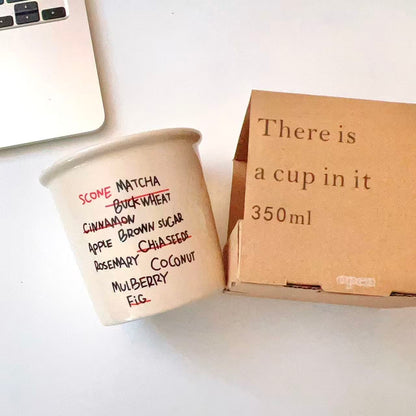 SCONE MATCHA
BUCKWHEAT
CINNAMON
APPLE BROWN SUGAR
CHIASEEDS
ROSEMARY COCONUT
MULBERRY
FiG
There is
a cup in it
350ml